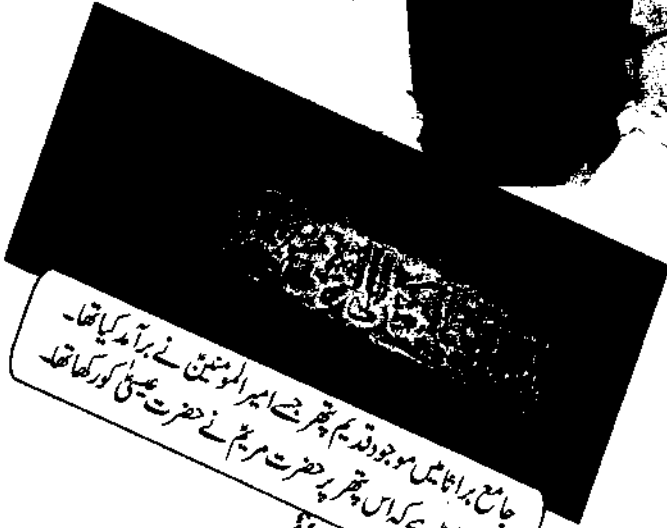 جامع براثا میں موجود قدیم پتھر جسے امیر المومنینؑ نے برآمد کیا تھا۔
ہے کہ اس پتھر پر حضرت مریمؑ نے حضرت عیسیٰؑ کو رکھا تھا۔